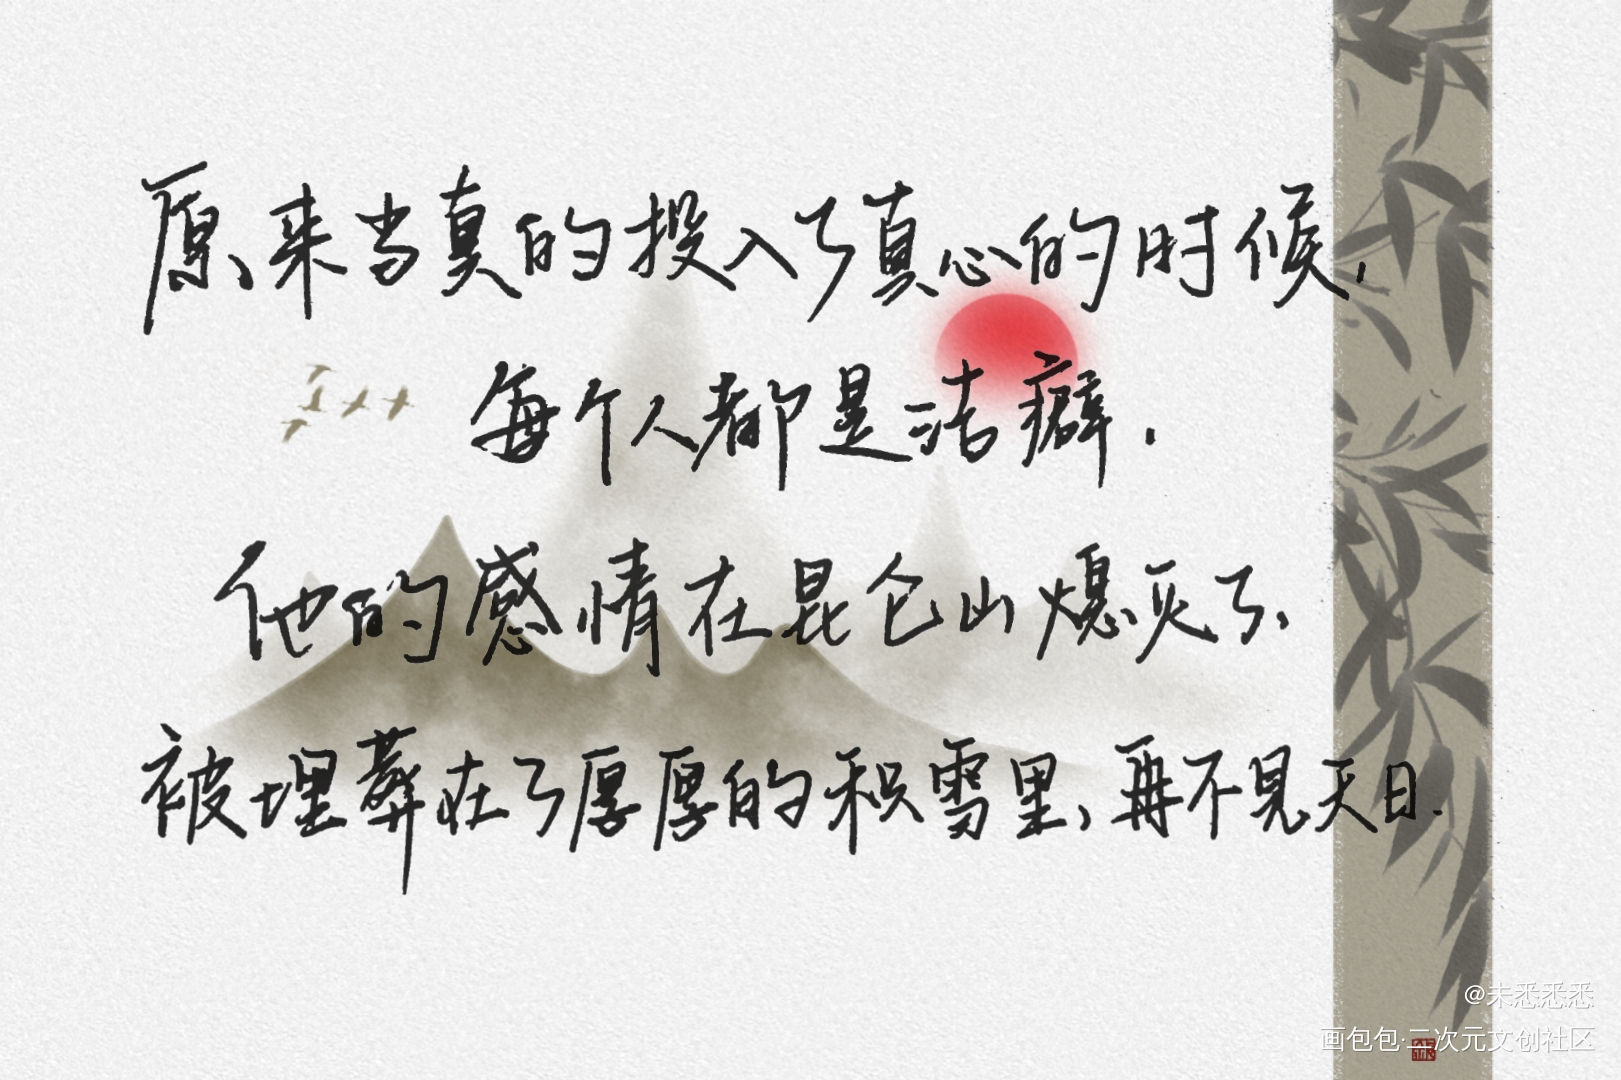 原来当真的投入了真心的时候，
每个人都是洁癖.
他的感情在昆仑山熄灭了、
被埋葬在了厚厚的积雪里、再不见天日.
@未悉悉悉
画包包·二次元文创社区